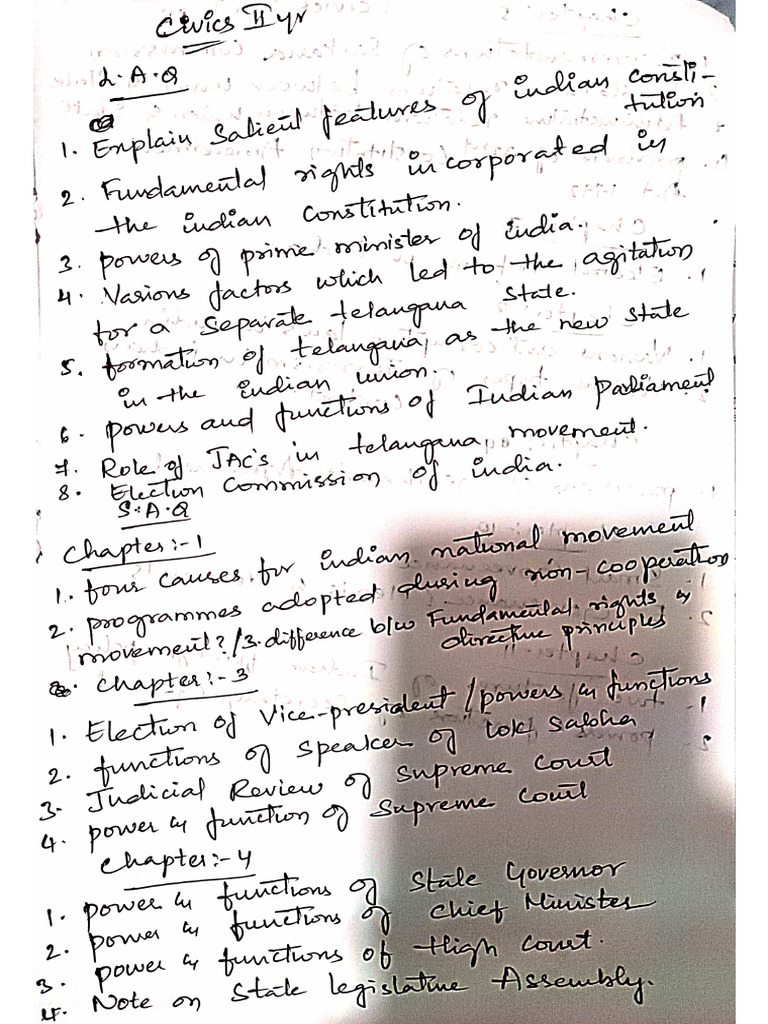 Civics II yr
L.A.Q
1. Explain Salient features of indian consti-
tution
2. Fundamental rights incorporated in
the indian Constitution.
3. powers of prime minister of india.
4. Various factors which led to the agitation
for a separate telangana state.
5. formation of telangana, as the new state
in the indian union.
6. powers and functions of Indian Parliament
7. Role of JAC's in telangana movement.
8. Election Commission of india.
S.A.Q
Chapter:-1
1. four causes for indian national movement
2. programmes adopted during non-cooperation
movement?/3. difference b/w Fundamental rights &
directive principles
Chapter:-3
1. Election of Vice-president/powers & functions
2. functions of speaker of lok sabha
3. Judicial Review of supreme court
4. power & function of Supreme Court
Chapter:-4
1. power & functions of State Governor
2. power & functions of Chief Minister
3. power & functions of High court.
4. Note on State legislative Assembly.